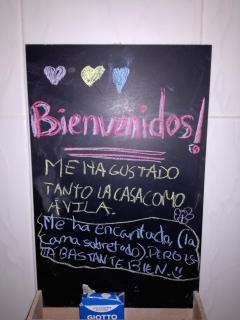 Bienvenidos!
ME HA GUSTADO
TANTO LA CASA COMO
ÁVILA.
Me ha encantada (la
cama sobretodo). PERO ES
BASTANTE BIEN
GIOTTO